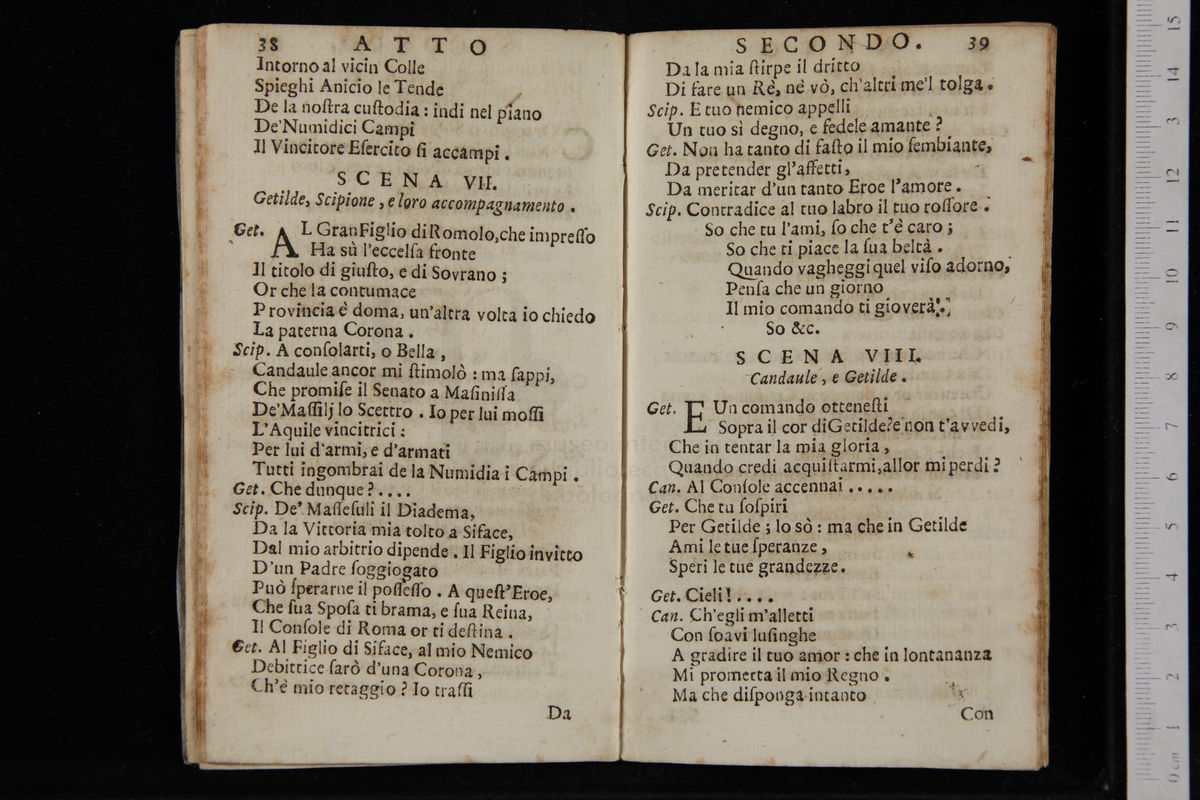 38 ATTO
Intorno al vicin Colle
Spieghi Anicio le Tende
De la noſtra cuſtodia : indi nel piano
De'Numidici Campi
Il Vincitore Eſercito ſi accampi .
SCENA VII.
Getilde, Scipione , e loro accompagnamento .
Get. AL Gran Figlio di Romolo, che impreſſo
Ha sù l'eccelſa fronte
Il titolo di giuſto, e di Sovrano ;
Or che la contumace
Provincia è doma, un'altra volta io chiedo
La paterna Corona .
Scip. A conſolarti, o Bella ,
Candaule ancor mi ſtimolò : ma ſappi,
Che promiſe il Senato a Maſiniſſa
De'Maſſilj lo Scettro . Io per lui moſſi
L'Aquile vincitrici :
Per lui d'armi, e d'armati
Tutti ingombrai de la Numidia i Campi .
Get. Che dunque ? . . . .
Scip. De' Maſſeſuli il Diadema,
Da la Vittoria mia tolto a Siface,
Dal mio arbitrio dipende . Il Figlio invitto
D'un Padre ſoggiogato
Può ſperarne il poſſeſſo . A queſt'Eroe,
Che ſua Spoſa ti brama, e ſua Reina,
Il Conſole di Roma or ti deſtina .
Get. Al Figlio di Siface, al mio Nemico
Debittice ſarò d'una Corona ,
Ch'è mio retaggio ? Io traſſi
Da
SECONDO. 39
Da la mia ſtirpe il dritto
Di fare un Rè, nè vò, ch'altri me'l tolga .
Scip. E tuo nemico appelli
Un tuo sì degno, e fedele amante ?
Get. Non ha tanto di faſto il mio ſembiante,
Da pretender gl'affetti,
Da meritar d'un tanto Eroe l'amore .
Scip. Contradice al tuo labro il tuo roſſore .
So che tu l'ami, ſo che t'è caro ;
So che ti piace la ſua beltà .
Quando vagheggi quel viſo adorno,
Penſa che un giorno
Il mio comando ti gioverà.
So &c.
SCENA VIII.
Candaule , e Getilde .
Get. EUn comando otteneſti
Sopra il cor di Getilde? e non t'avvedi,
Che in tentar la mia gloria ,
Quando credi acquiſtarmi, allor mi perdi ?
Can. Al Conſole accennai . . . . .
Get. Che tu ſoſpiri
Per Getilde ; lo sò : ma che in Getilde
Ami le tue ſperanze ,
Speri le tue grandezze .
Get. Cieli ! . . . .
Can. Ch'egli m'alletti
Con ſoavi luſinghe
A gradire il tuo amor : che in lontananza
Mi prometta il mio Regno .
Ma che diſponga intanto
Con